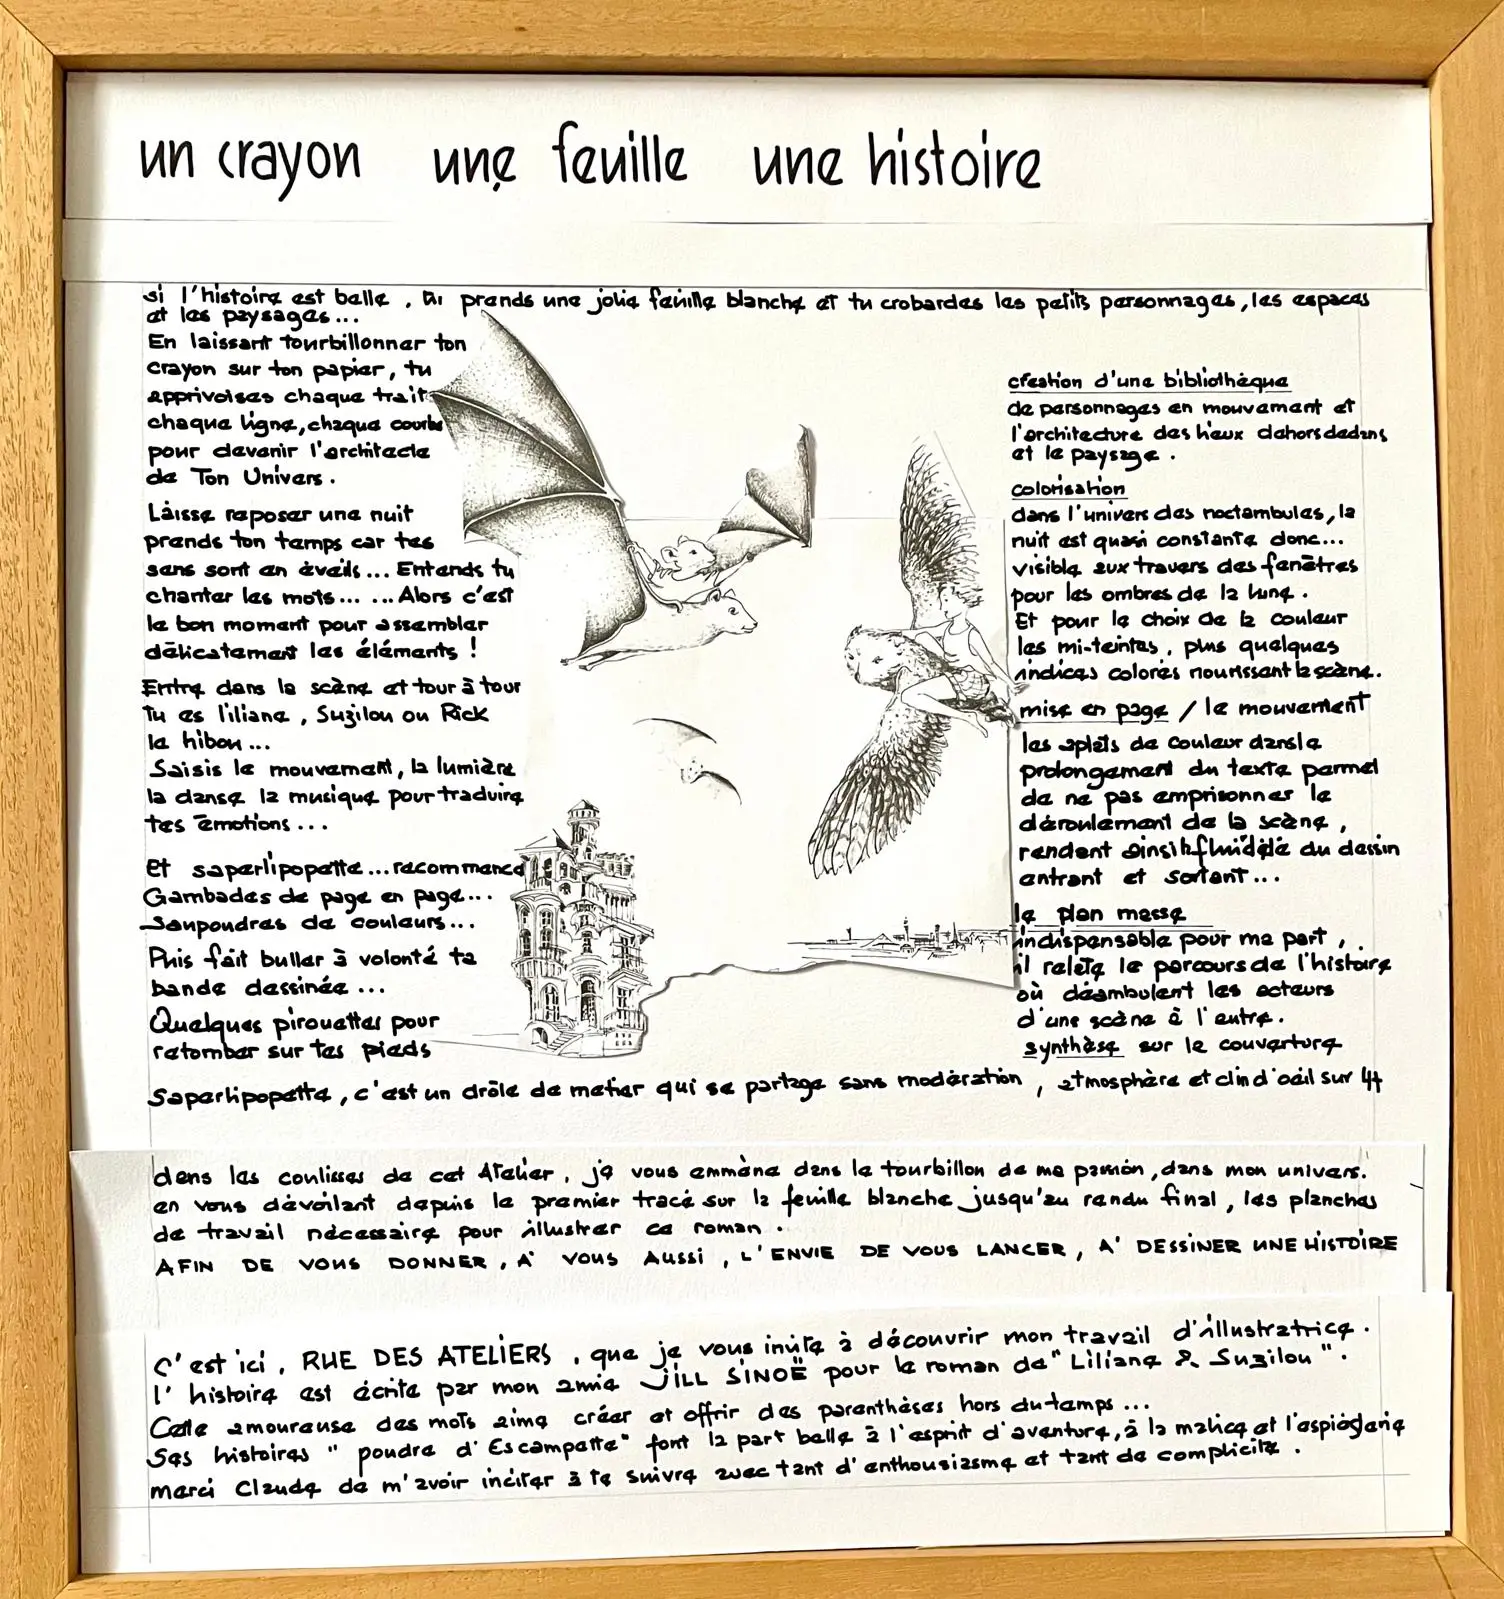 un crayon une feuille une histoire
si l'histoire est belle, tu prends une jolie feuille blanche et tu crobardes les petits personnages, les espaces
et les paysages...
En laissant tourbillonner ton
crayon sur ton papier, tu
apprivoises chaque trait
chaque ligne, chaque courbe
pour devenir l'architecte
de Ton Univers.
Laisse reposer une nuit
prends ton temps car tes
sens sont en éveils... Entends tu
chanter les mots... ...Alors c'est
le bon moment pour assembler
délicatement les éléments !
Entre dans la scène et tour à tour
Tu es liliane, Suzilou ou Rick
le hibou...
Saisis le mouvement, la lumière
la danse la musique pour traduire
tes émotions...
et saperlipopette... recommence
Gambades de page en page...
Saupoudres de couleurs...
Puis fait buller à volonté ta
bande dessinée...
Quelques pirouettes pour
retomber sur tes pieds
création d'une bibliothèque
de personnages en mouvement et
l'architecture des lieux dehors dedans
et le paysage.
colorisation
dans l'univers des noctambules, la
nuit est quasi constante donc...
visible aux travers des fenêtres
pour les ombres de la lune.
Et pour le choix de la couleur
les mi-teintes, plus quelques
indices colorés nourissant la scène.
mise en page / le mouvement
les aplats de couleur dans le
prolongement du texte permet
de ne pas emprisonner le
déroulement de la scène,
rendant ainsi la fluidité du dessin
entrant et sortant...
le plan masse
indispensable pour ma part,
il relate le parcours de l'histoire
où déambulent les acteurs
d'une scène à l'autre.
synthèse sur la couverture
Saperlipopette, c'est un drôle de metier qui se partage sans modération, atmosphère et clin d'oeil sur 4
dans les coulisses de cet Atelier, je vous emmène dans le tourbillon de ma passion, dans mon univers.
en vous dévoilant depuis le premier tracé sur la feuille blanche jusqu'au rendu final, les planches
de travail nécessaire pour illustrer ce roman.
AFIN DE VOUS DONNER, A' VOUS AUSSI, L'ENVIE DE VOUS LANCER, A' DESSINER UNE HISTOIRE
C'est ici, RUE DES ATELIERS, que je vous invite à découvrir mon travail d'illustratrice.
l'histoire est écrite par mon amie JILL SINOË pour le roman de "Liliane & Suzilou".
Cette amoureuse des mots aime créer et offrir des parenthèses hors du temps...
Ses histoires "poudre d'Escampette" font la part belle à l'esprit d'aventure, à la malice et l'espièglerie
merci Claude de m'avoir inciter à te suivre avec tant d'enthousiasme et tant de complicité.